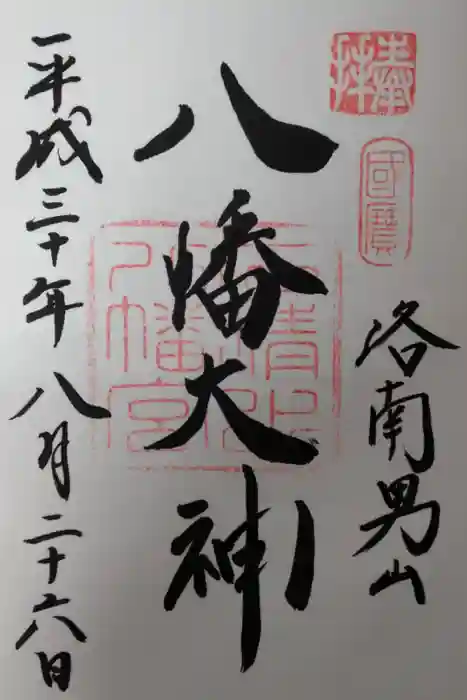 奉拝
國寳
洛南男山
八幡大神
石清水
八幡宮
平成三十年八月二十六日